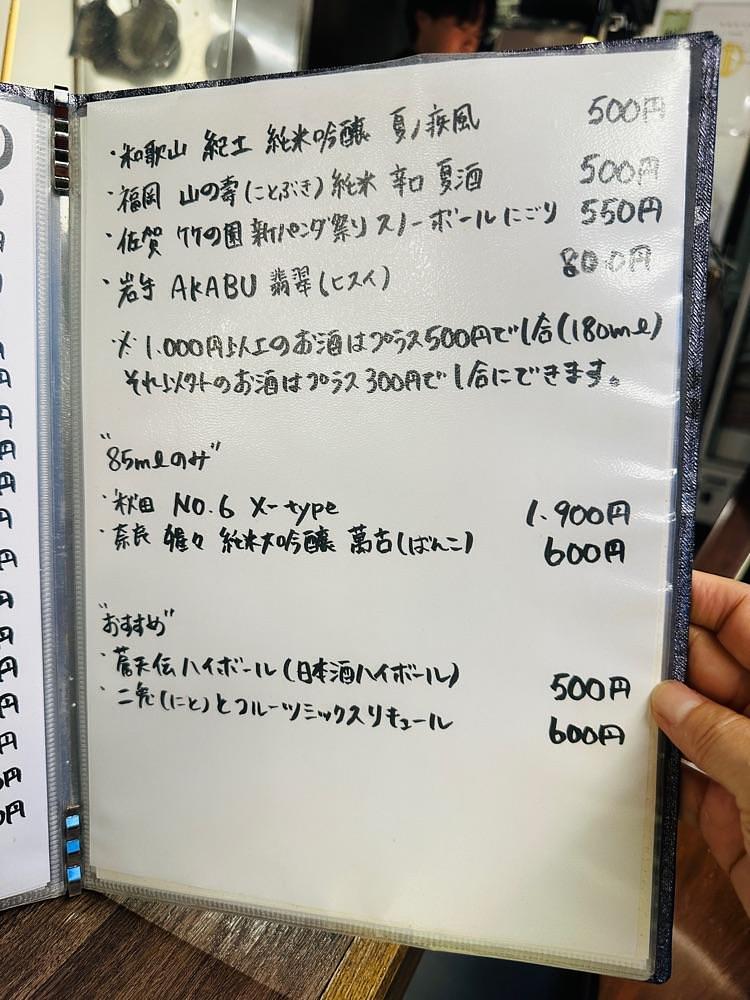 ・和歌山 紀土 純米吟醸 夏ノ疾風 500円
・福岡 山の壽(ことぶき)純米 辛口 夏酒 500円
・佐賀 竹の園 新パンダ祭り スノーボール にごり 550円
・岩手 AKABU 翡翠(ヒスイ) 800円
※ 1.000円以上のお酒はプラス500円で1合(180mℓ)
それ以外のお酒はプラス300円で1合にできます。
"85mℓのみ"
・秋田 NO.6 X-type 1.900円
・奈良 々 純米大吟醸 萬古(ばんこ) 600円
"おすすめ"
・蒼天伝ハイボール(日本酒ハイボール) 500円
・二兎(にと)とフルーツミックスリキュール 600円
円
円
円
円
円
円
円
円
円
円